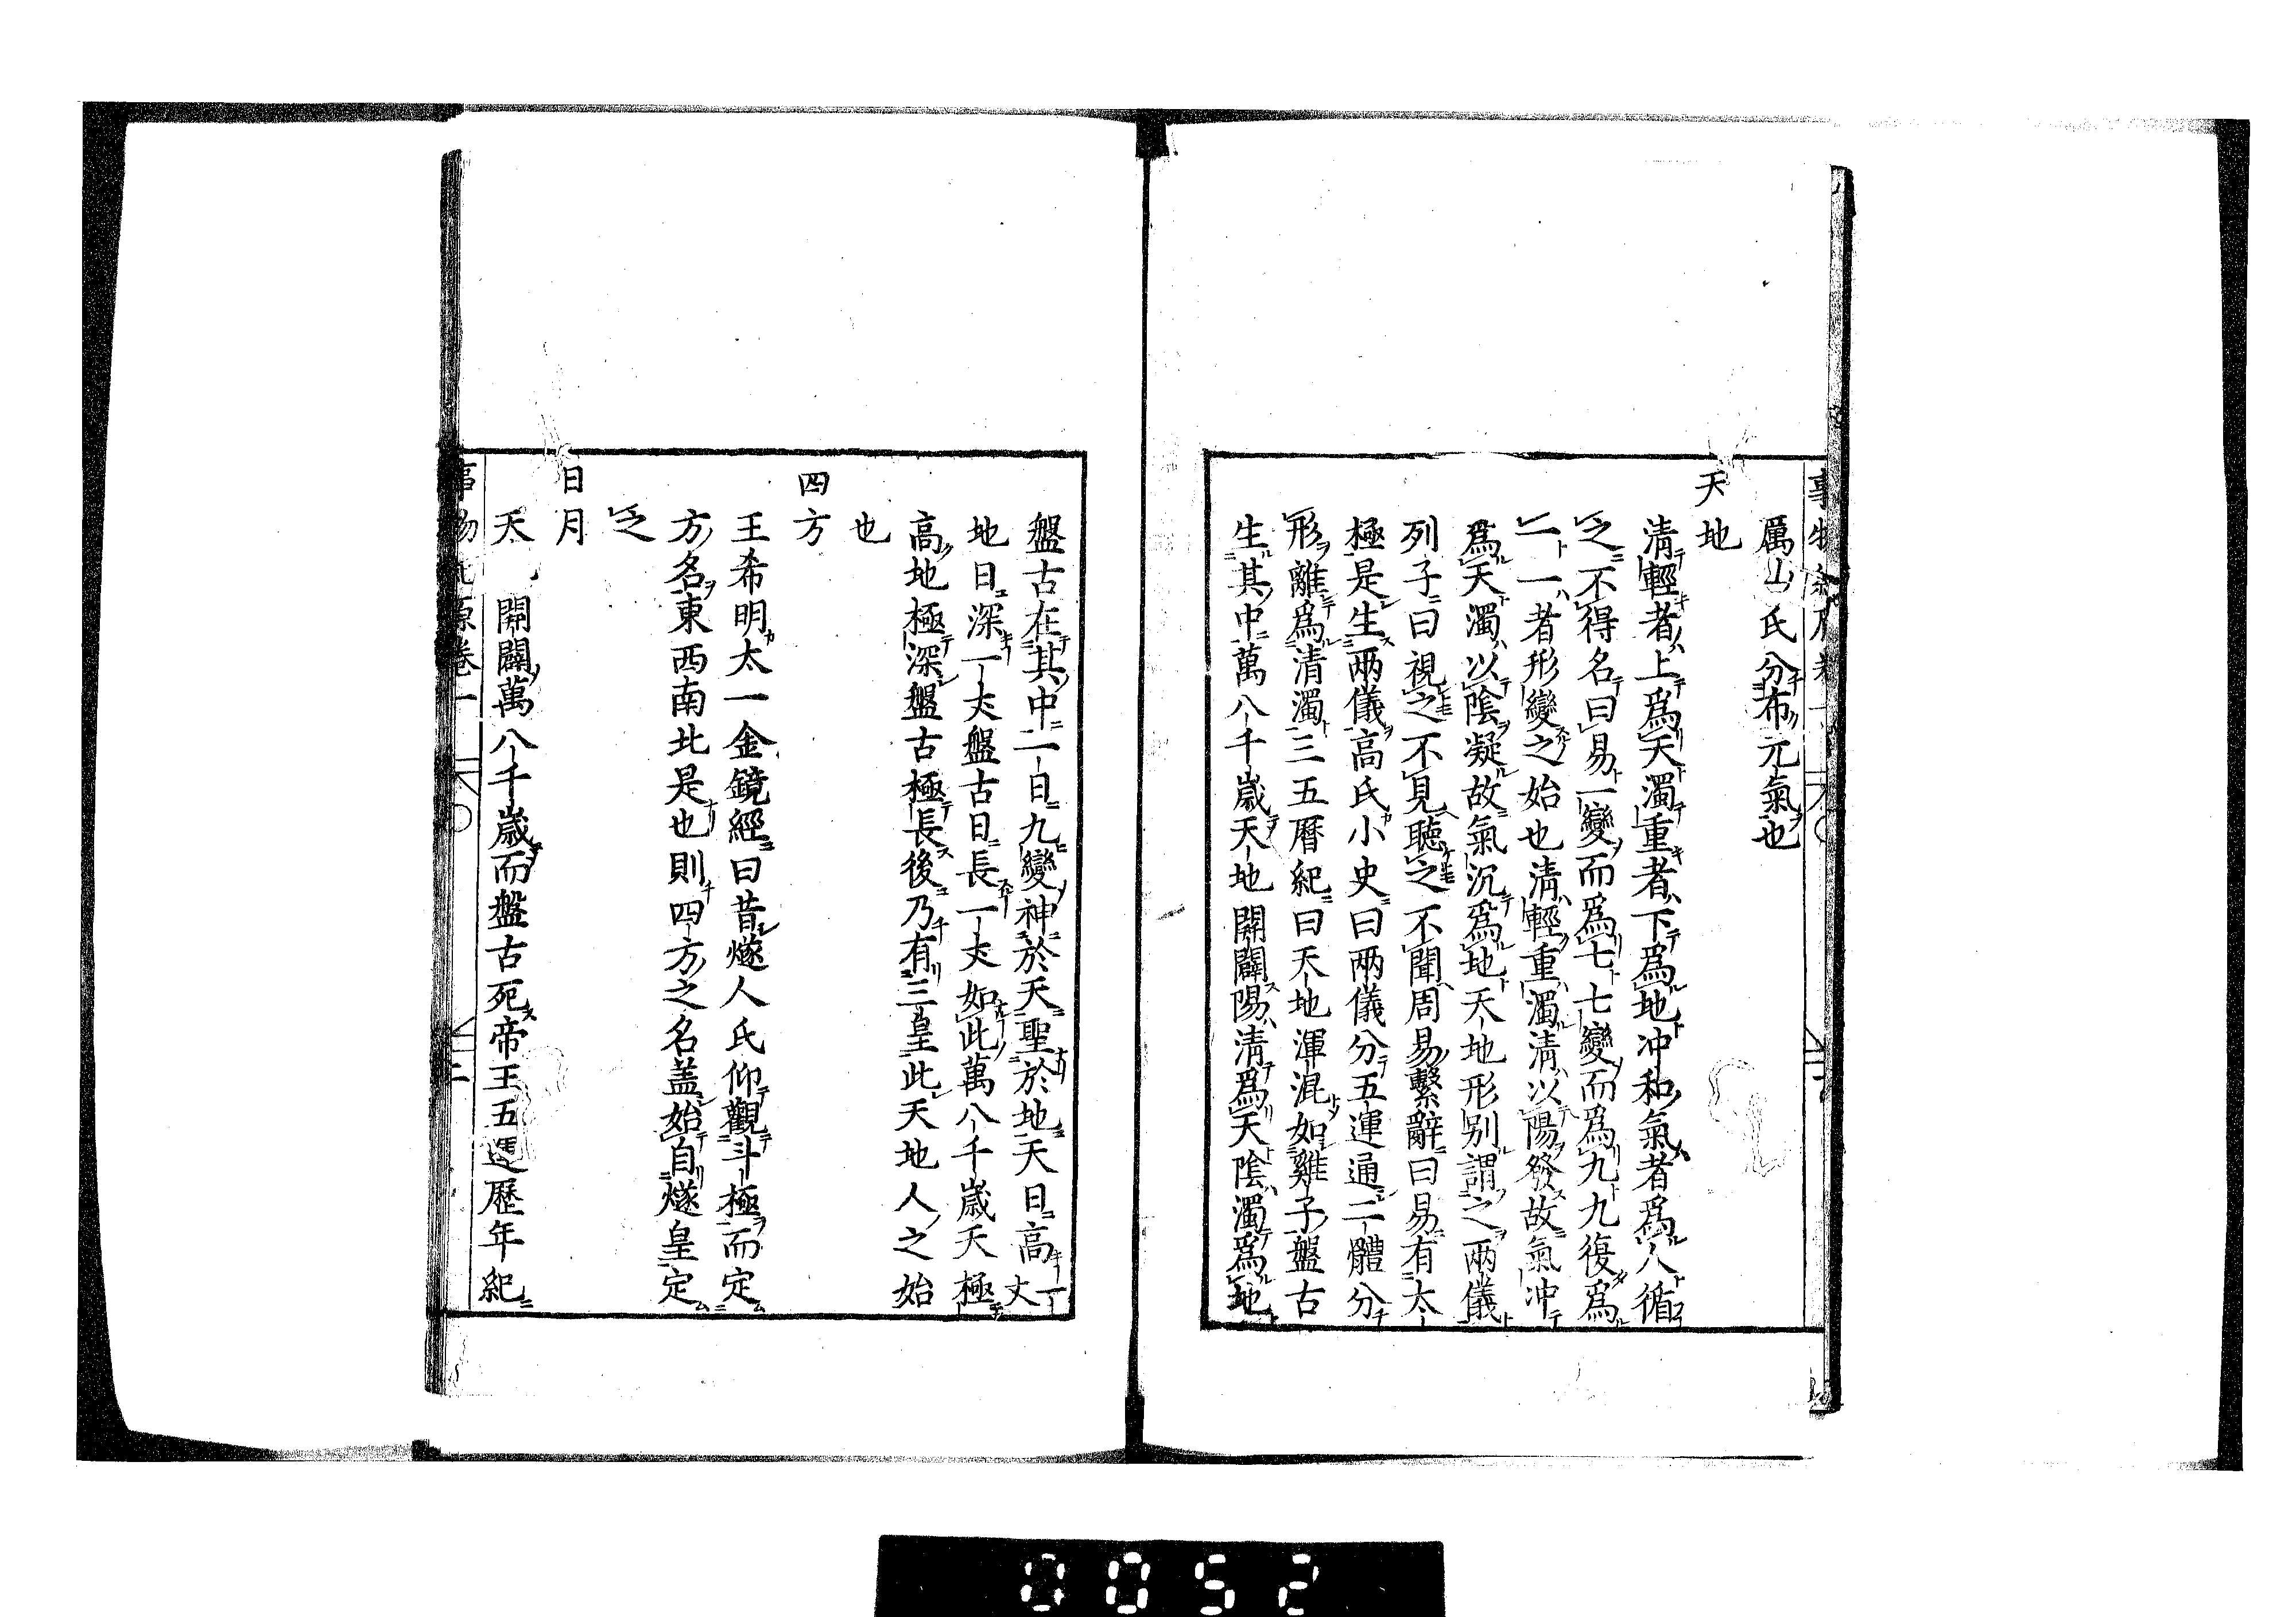 厲山氏分布元氣也
天地
清輕者上爲天濁重者下爲地冲和氣者爲人循
之不得名曰易一變而爲七七變而爲九九復爲
一一者形變之始也清輕重濁清以陽發故氣冲
爲天濁以陰凝故氣沉爲地天地形別謂之兩儀
列子曰視之不見聽之不聞周易繫辭曰易有太
極是生兩儀高氏小史曰兩儀分五運通二體分
形離爲清濁三五曆紀曰天地渾混如雞子盤古
生其中萬八千歲天地開闢陽清爲天陰濁爲地
盤古在其中一日九變神於天聖於地天日高一丈
地日深一丈盤古日長一丈如此萬八千歲天極
高地極深盤古極長後乃有三皇此天地人之始
也
四方
王希明太一金鏡經曰昔燧人氏仰觀斗極而定
方名東西南北是也則四方之名盖始自燧皇定
之
日月
天 開闢萬八千歲而盤古死帝王五運歷年紀
事物紀原卷一 二
0052